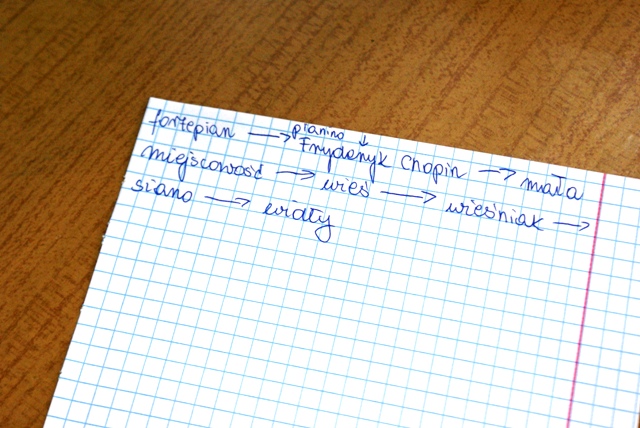 fortepian → pianino ↓ Fryderyk Chopin → mała
miejscowość → wieś → wieśniak →
siano → widły